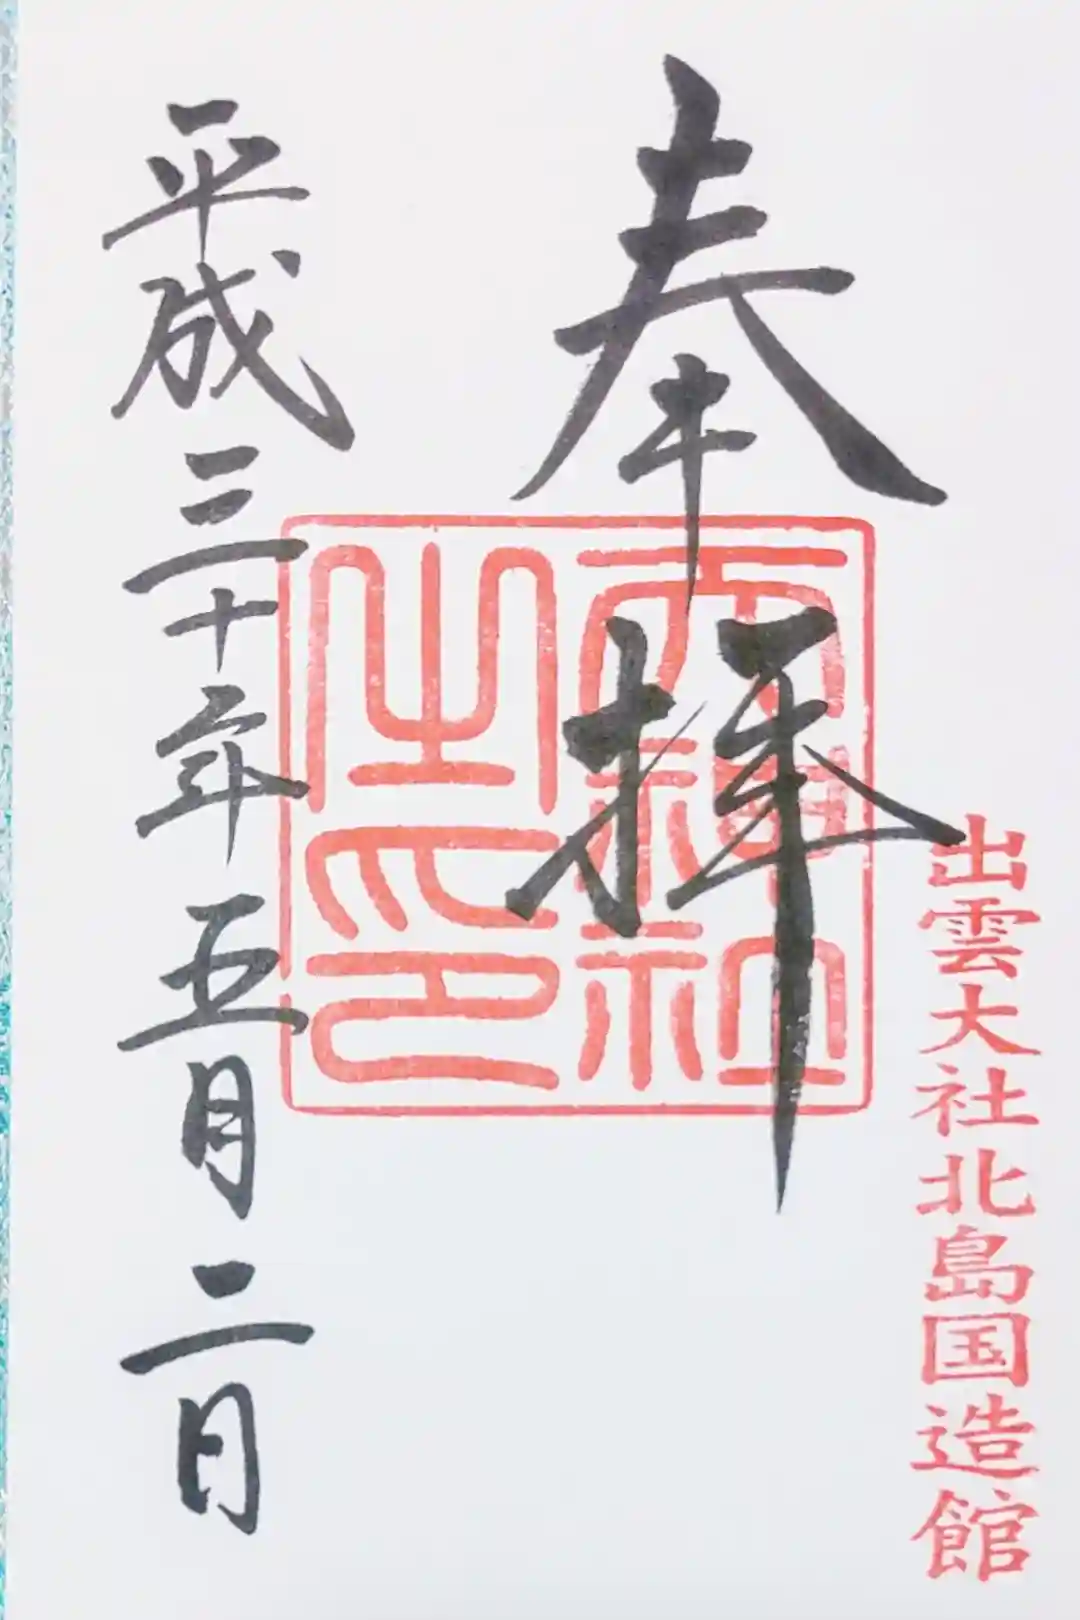 出雲大社北島国造館
奉拝
天神社
之印
平成三十年五月二日